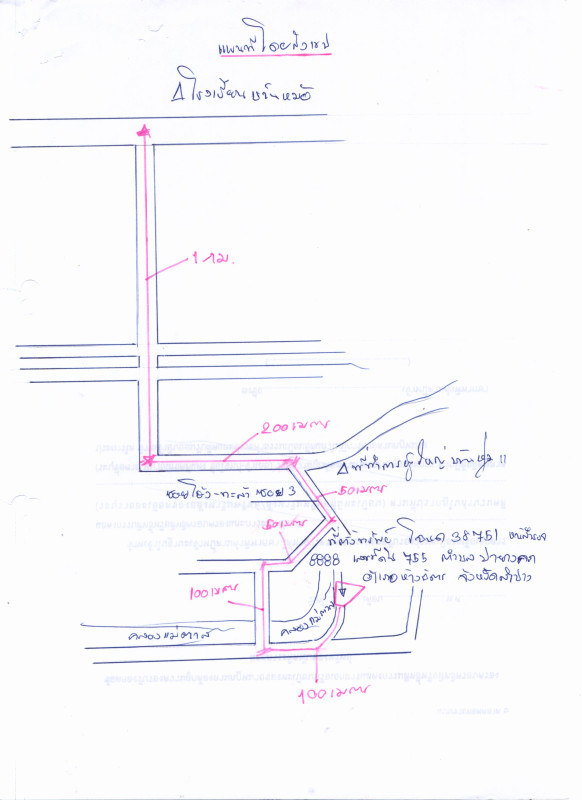 แผนที่โดยสังเขป
โรงเรียน
1 กม.
200 เมตร
ที่ทำการผู้ใหญ่บ้าน หมู่ 11
50 เมตร
ซอย 3
50 เมตร
ที่ตั้งทรัพย์ โฉนด 38751
8888 เลขที่ดิน 755 ตำบล ปงยางคก
อำเภอห้างฉัตร จังหวัดลำปาง
100 เมตร
คลองแม่ตาล
คลองแม่ตาล
100 เมตร